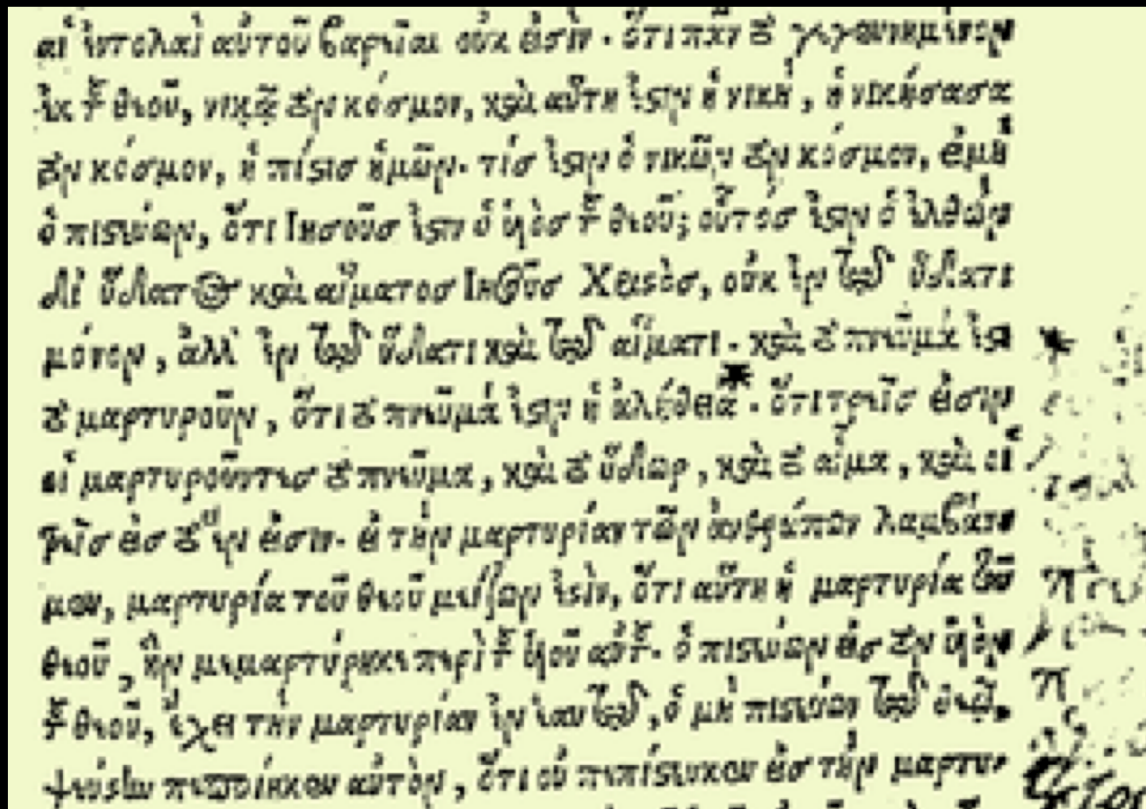 αἱ ἐντολαὶ αὐτοῦ βαρεῖαι οὐκ ἐισίν. ὅτι πᾶν τὸ γεγεννημένον
ἐκ τοῦ θεοῦ, νικᾷ τὸν κόσμον, καὶ αὕτη ἐστὶν ἡ νικὴ, ἡ νικήσασα
τὸν κόσμον, ἡ πίστισ ἡμῶν. τίσ ἐστιν ὁ νικῶν τὸν κόσμον, ἐιμὴ
ὁ πιστεύων, ὅτι Ιησοῦσ ἐστιν ὁ ὑιὸσ τοῦ θεοῦ; οὗτόσ ἐστιν ὁ ἐλθὼν
δι ὕδατος καὶ αἵματοσ Ιησοῦσ Χριστὸσ, οὐκ ἐν τῷ ὕδατι
μόνον, ἀλλ' ἐν τῷ ὕδατι καὶ τῷ αἵματι. καὶ τὸ πνεῦμά ἐστι
τὸ μαρτυροῦν, ὅτι τὸ πνεῦμά ἐστιν ἡ ἀλήθεια*. ὅτι τρεῖσ ἐισὶν
οἱ μαρτυροῦντεσ τὸ πνεῦμα, καὶ τὸ ὕδωρ, καὶ τὸ αἷμα, καὶ οἱ
τρεῖσ ἐισ τὸ ἕν ἐισιν. ἐι τὴν μαρτυρίαν τῶν ἀνθρώπων λαμβάνο
μεν, μαρτυρία τοῦ θεοῦ μείζων ἐστὶν, ὅτι αὕτη ἡ μαρτυρία τοῦ
θεοῦ, ἣν μεμαρτύρηκε περὶ τοῦ ὑιοῦ αὐτοῦ. ὁ πιστεύων ἐισ τὸν ὑιὸν
τοῦ θεοῦ, ἔχει τὴν μαρτυρίαν ἐν ἑαυτῷ, ὁ μὴ πιστεύων τῷ θεῷ,
ψεύστην πεποίηκεν αὐτὸν, ὅτι οὐ πεπίστευκεν ἐισ τὴν μαρτυ